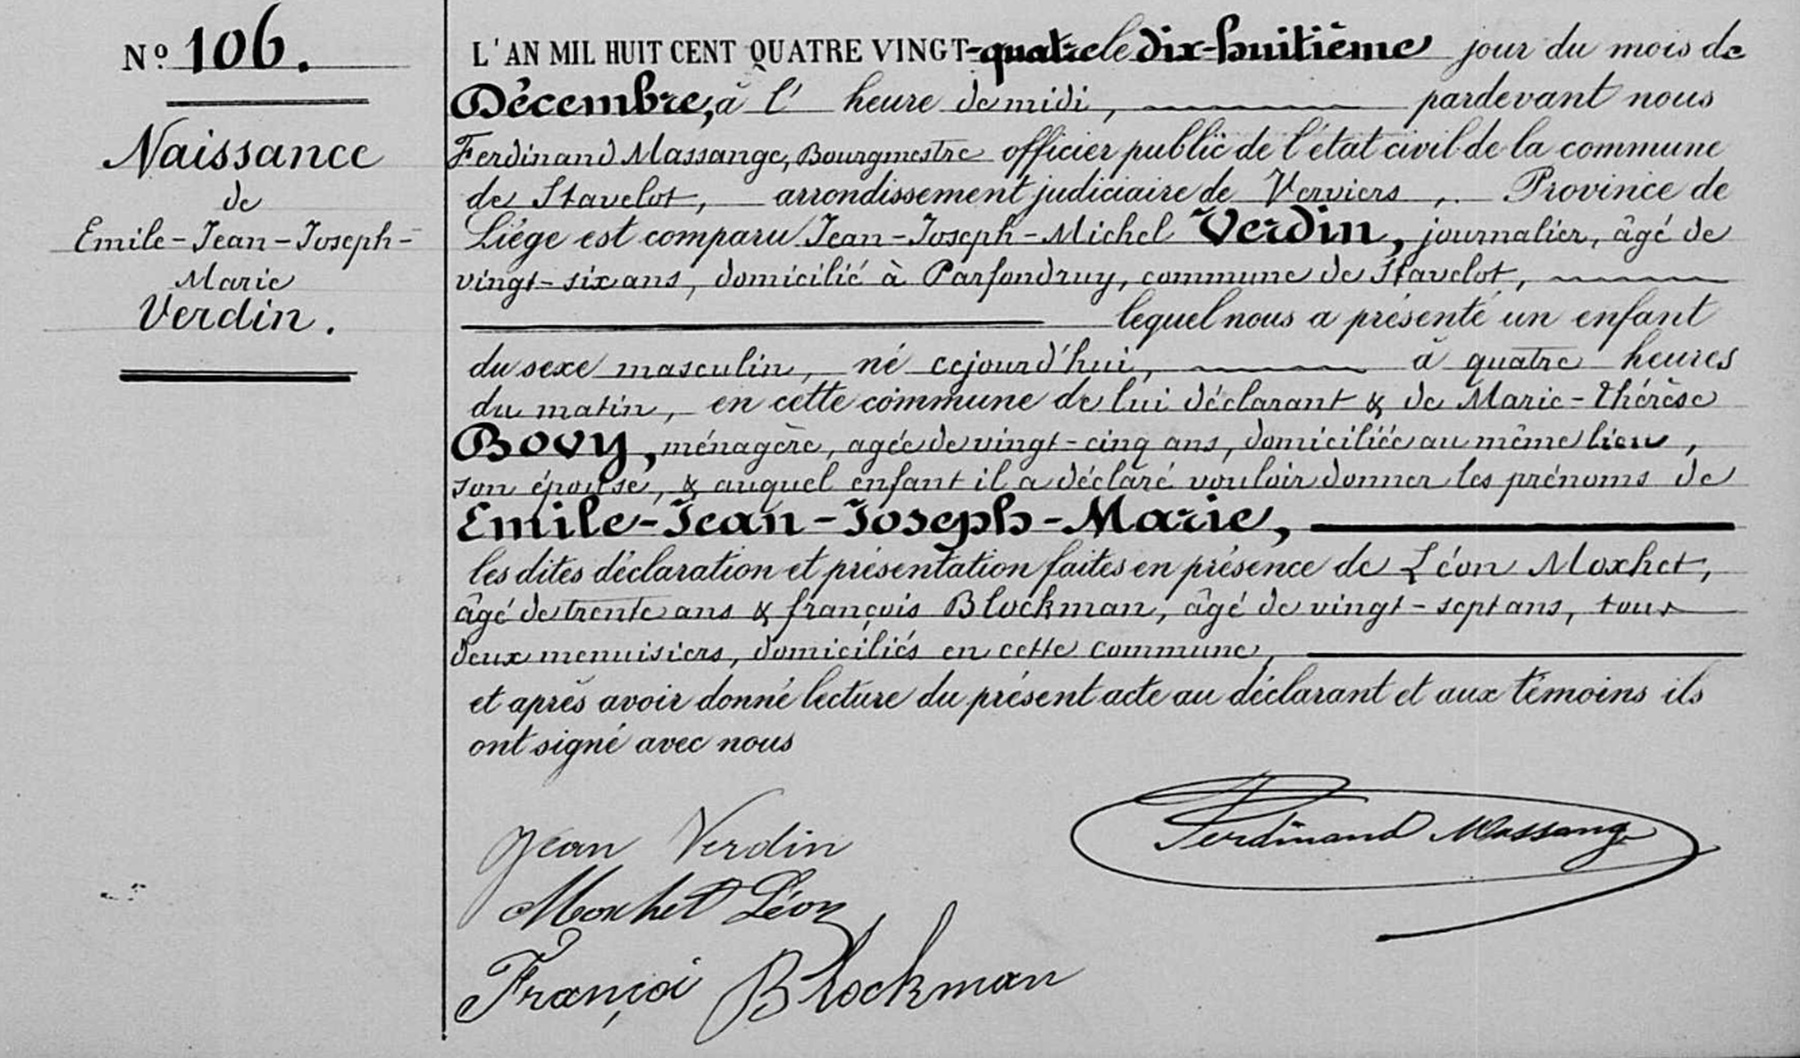 Nº 106.
Naissance
de
Emile-Jean-Joseph-
Marie
Verdin.
L'AN MIL HUIT CENT QUATRE VINGT-quatre le dix-huitième jour du mois de
Décembre, à l' heure de midi, pardevant nous
Ferdinand Massange, Bourgmestre officier public de l'état civil de la commune
de Stavelot, arrondissement judiciaire de Verviers, Province de
Liége est comparu Jean-Joseph-Michel Verdin, journalier, âgé de
vingt-six ans, domicilié à Parfondruy, commune de Stavelot,
lequel nous a présenté un enfant
du sexe masculin, né cejourd'hui, à quatre heures
du matin, en cette commune de lui déclarant & de Marie-Thérèse
Bovy, ménagère, agée de vingt-cinq ans, domiciliée au même lieu,
son épouse, & auquel enfant il a déclaré vouloir donner les prénoms de
Emile-Jean-Joseph-Marie,
les dites déclaration et présentation faites en présence de Léon Moxhet,
âgé de trente ans & françois Blockman, âgé de vingt-sept ans, tous
deux menuisiers, domiciliés en cette commune,
et après avoir donné lecture du présent acte au déclarant et aux témoins ils
ont signé avec nous
Jean Verdin
Ferdinand Massange
Moxhet Léon
Françoi Blockman